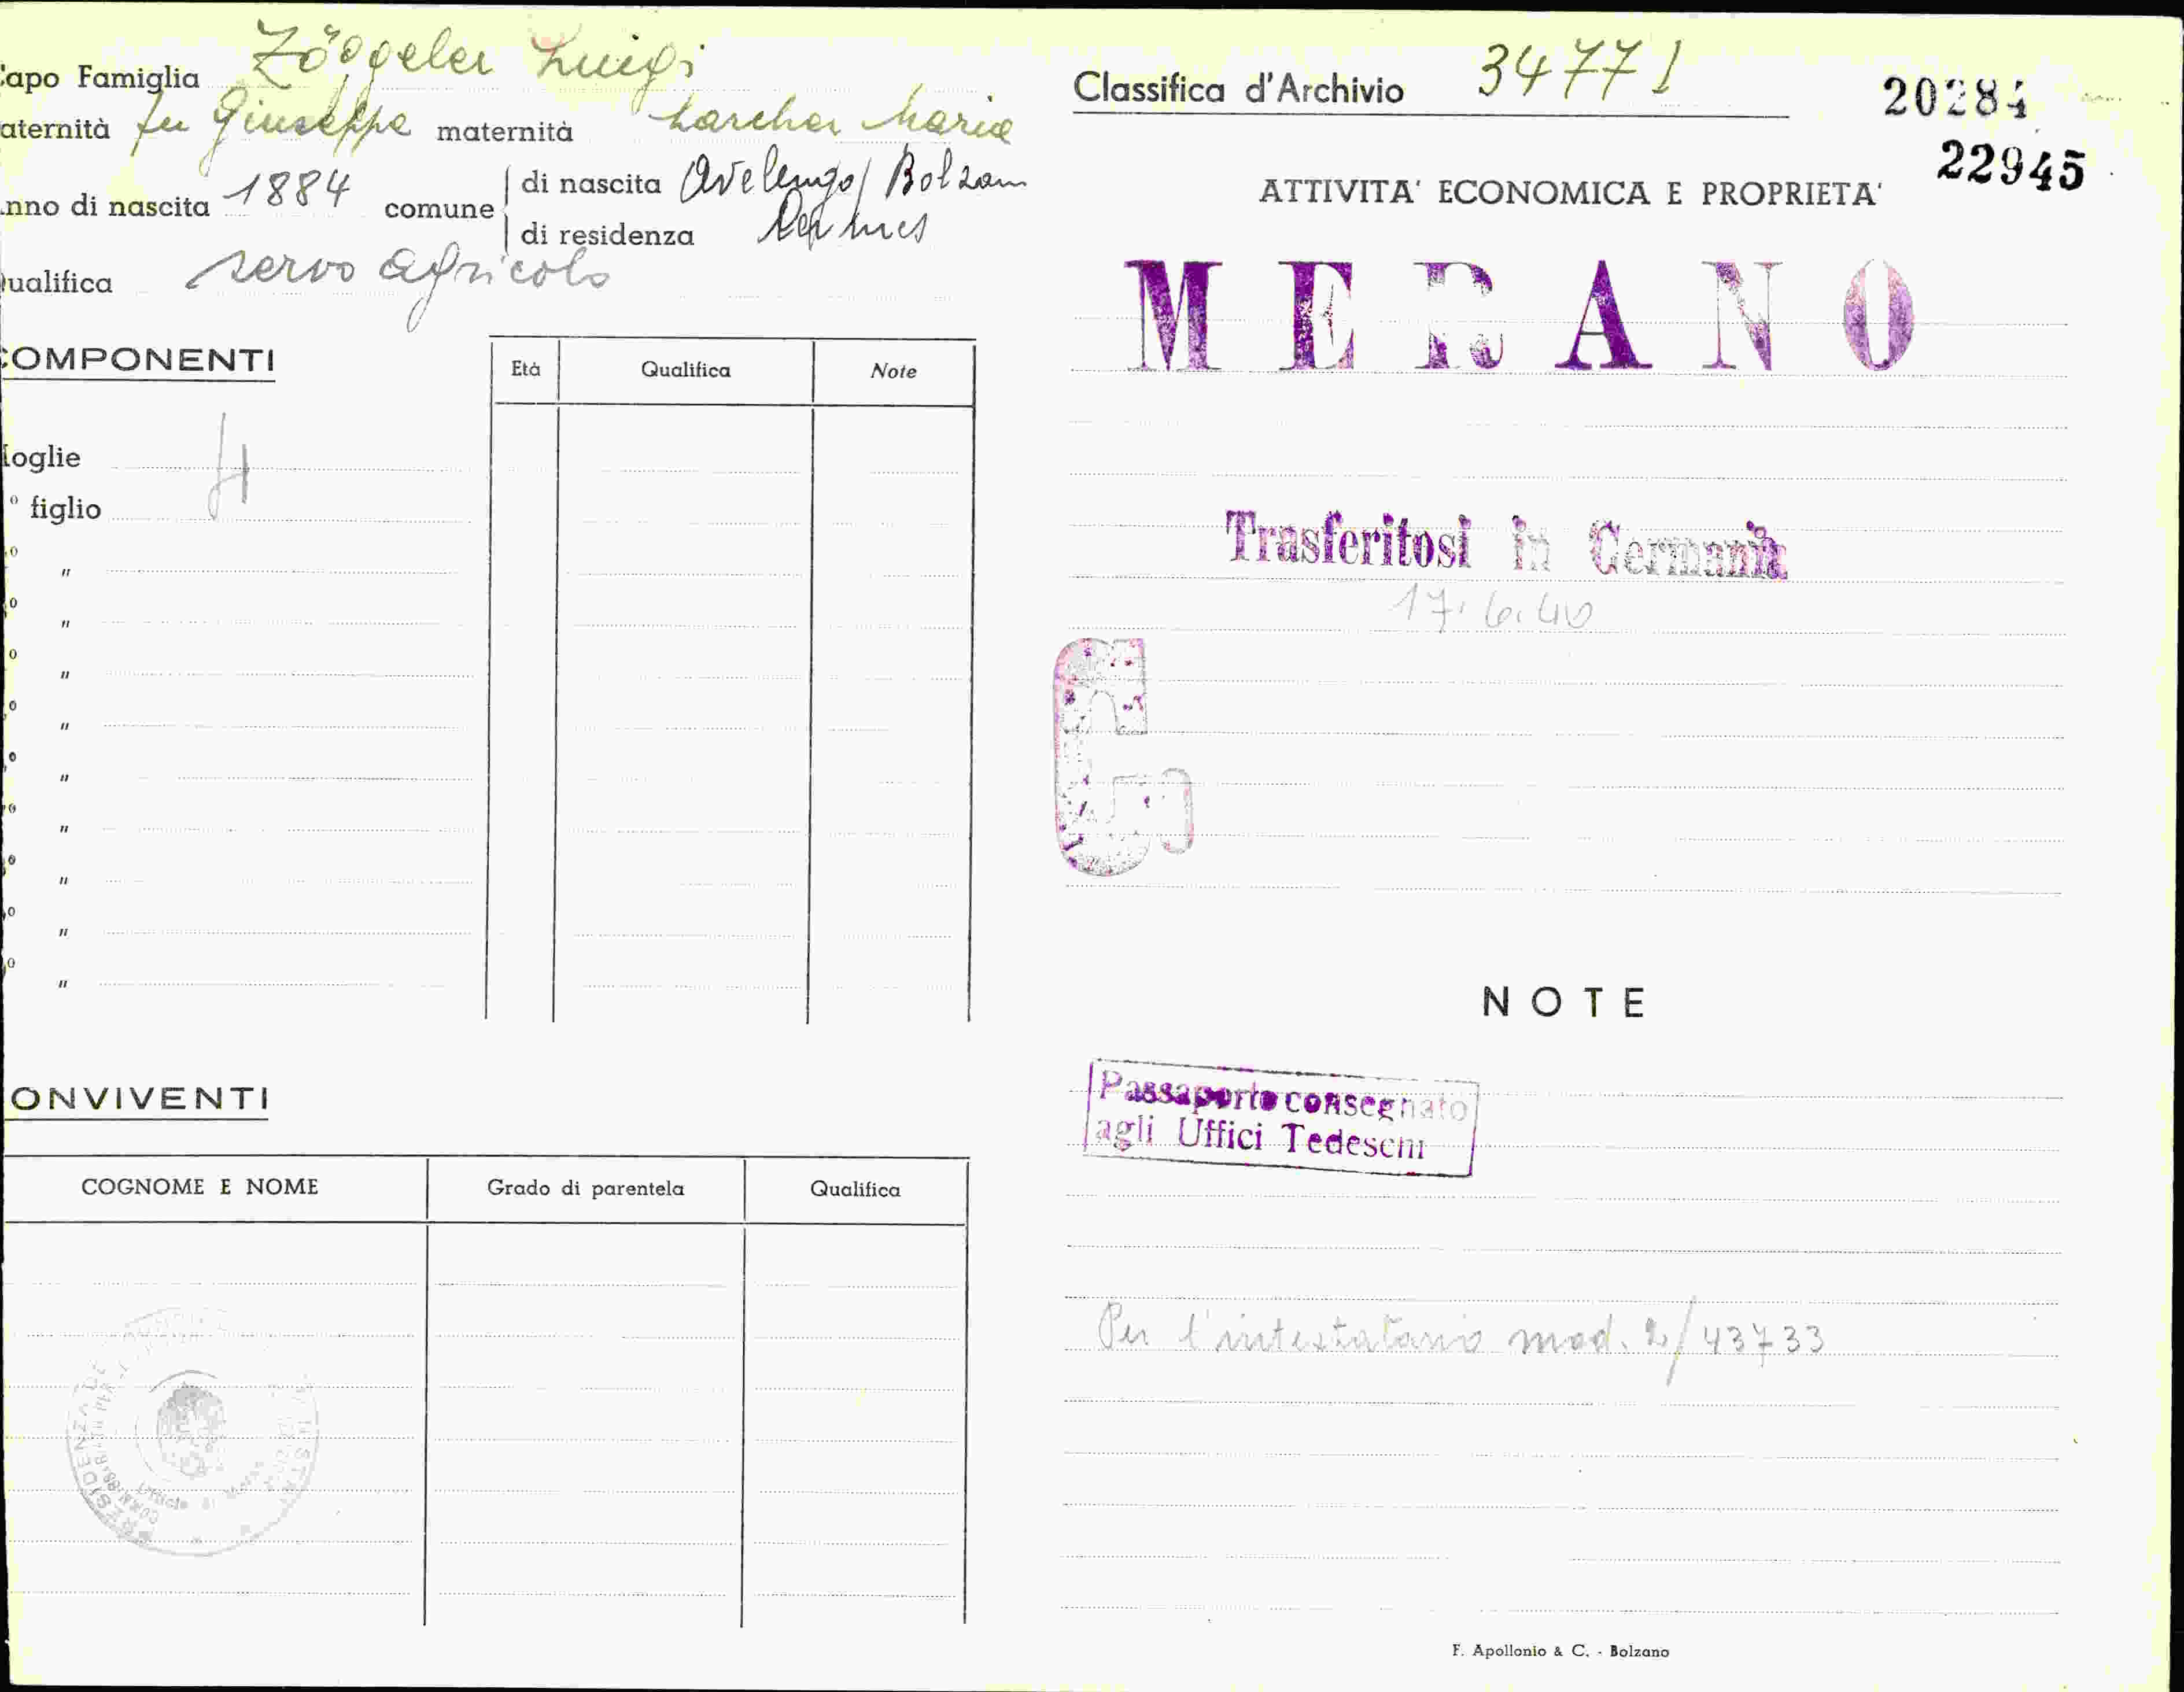 apo Famiglia Zöggeler Luigi
aternità fu Giuseppe maternità Larcher Maria
nno di nascita 1884 comune
di nascita Avelengo/Bolzano
di residenza
ualifica servo agricolo
OMPONENTI
Età Qualifica Note
oglie
° figlio
o "
o "
o "
o "
o "
o "
o "
o "
o "
ONVIVENTI
COGNOME E NOME Grado di parentela Qualifica
Classifica d'Archivio 34771
20284
22945
ATTIVITA' ECONOMICA E PROPRIETA'
MERANO
Trasferitosi in Germania
17.6.40
G
NOTE
Passaporto consegnato
agli Uffici Tedeschi
Per l'intestatario mod. 2/43733
F. Apollonio & C. - Bolzano